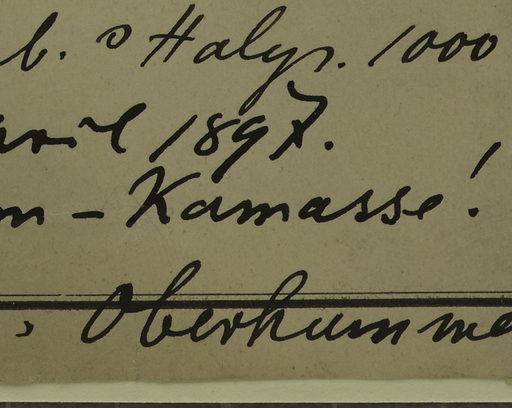 b. Halys. 1000
April 1897.
m - Kamasse!
Oberhumme